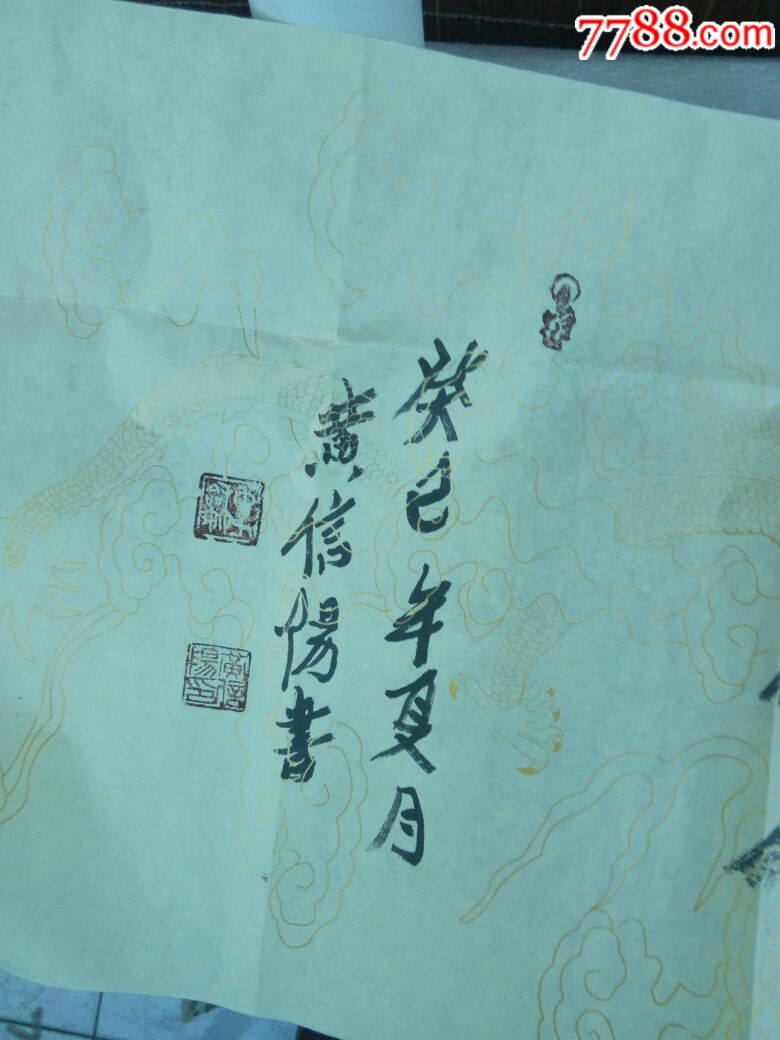 7788.com
癸巳年夏月
黄信陽書
黄信
陽印